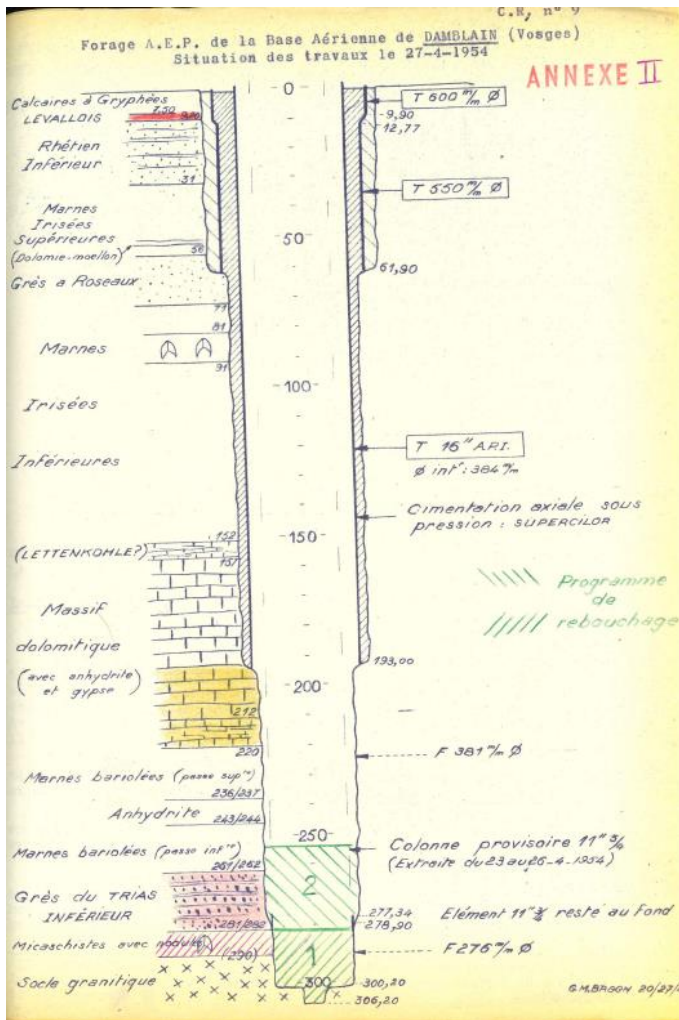 C.R, n° 9
Forage A.E.P. de la Base Aérienne de DAMBLAIN (Vosges)
Situation des travaux le 27-4-1954
ANNEXE II
Calcaires à Gryphées
7,50
LEVALLOIS
9,20
Rhétien
Inférieur
31
Marnes
Irisées
Supérieures
(Dolomie-moellon)
56
Grès a Roseaux
77
81
Marnes
91
Irisées
Inférieures
152
(LETTENKOHLE?)
157
Massif
dolomitique
(avec anhydrite
et gypse)
212
220
Marnes bariolées (passe supre)
236/237
Anhydrite
243/244
Marnes bariolées (passe infre)
261/262
Grès du TRIAS
INFÉRIEUR
281/282
Micaschistes avec
(290)
Socle granitique
-0-
50
-100-
-150-
-200-
-250-
2
1
-300-
T 600 m/m Ø
-9,90
12,77
T 550 m/m Ø
61,90
T 16" A.P.I.
Ø intr: 384 m/m
Cimentation axiale sous
pression : SUPERCILOR
Programme
de
rebouchage
193,00
F 381 m/m Ø
Colonne provisoire 11" 3/4
(Extraite du 23 au 26-4-1954)
277,34
278,90
Elément 11" 3/4 resté au fond
F 276 m/m Ø
300,20
306,20